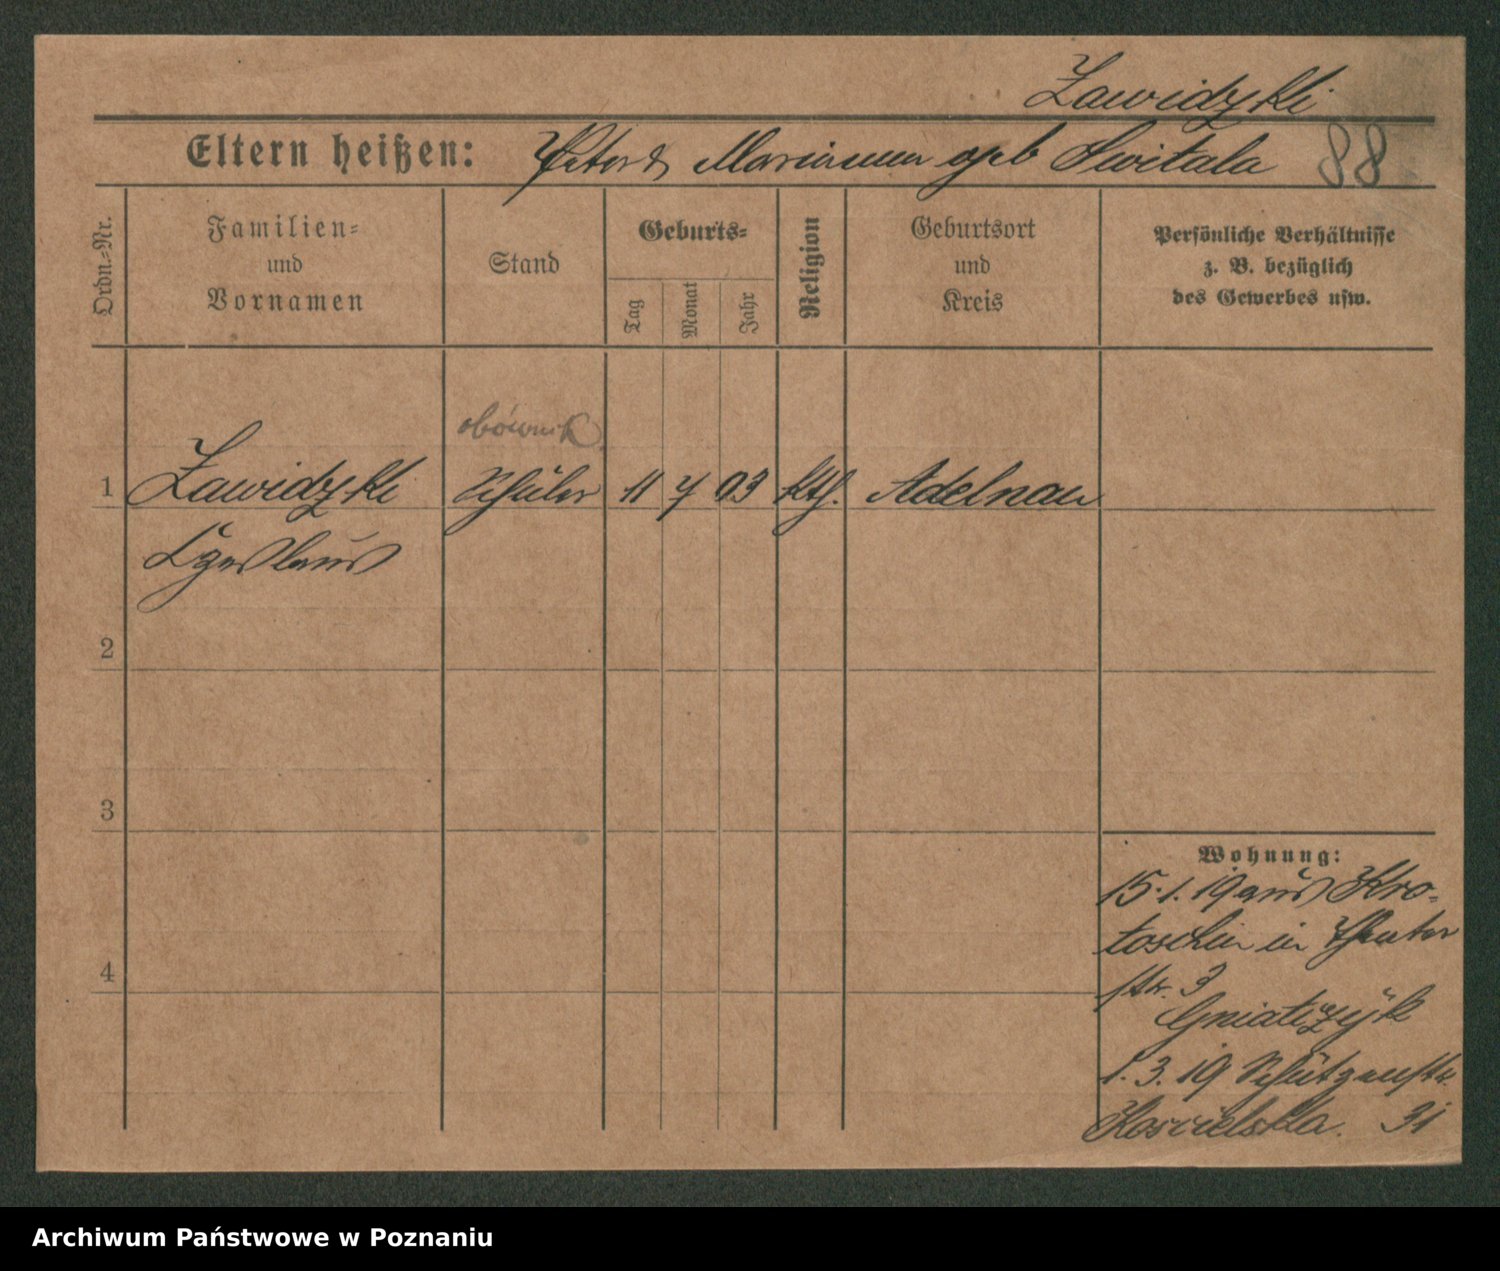 Zawidzki
Eltern heißen: Peter & Marianna geb Switala 88
Ordn.=Nr.
Familien=
und
Vornamen
Stand
Geburts=
Tag
Monat
Jahr
Religion
Geburtsort
und
Kreis
Persönliche Verhältnisse
z. B. bezüglich
des Gewerbes usw.
1 Zawidzki Schüler 11 7 03 kth. Adelnau
2
3
4
Wohnung:
15.1.19 aus Kro-
toschin in Theater
str. 3
Gniatczÿk
1.3.19 Schützenstr.
Koscielska. 31
Archiwum Państwowe w Poznaniu